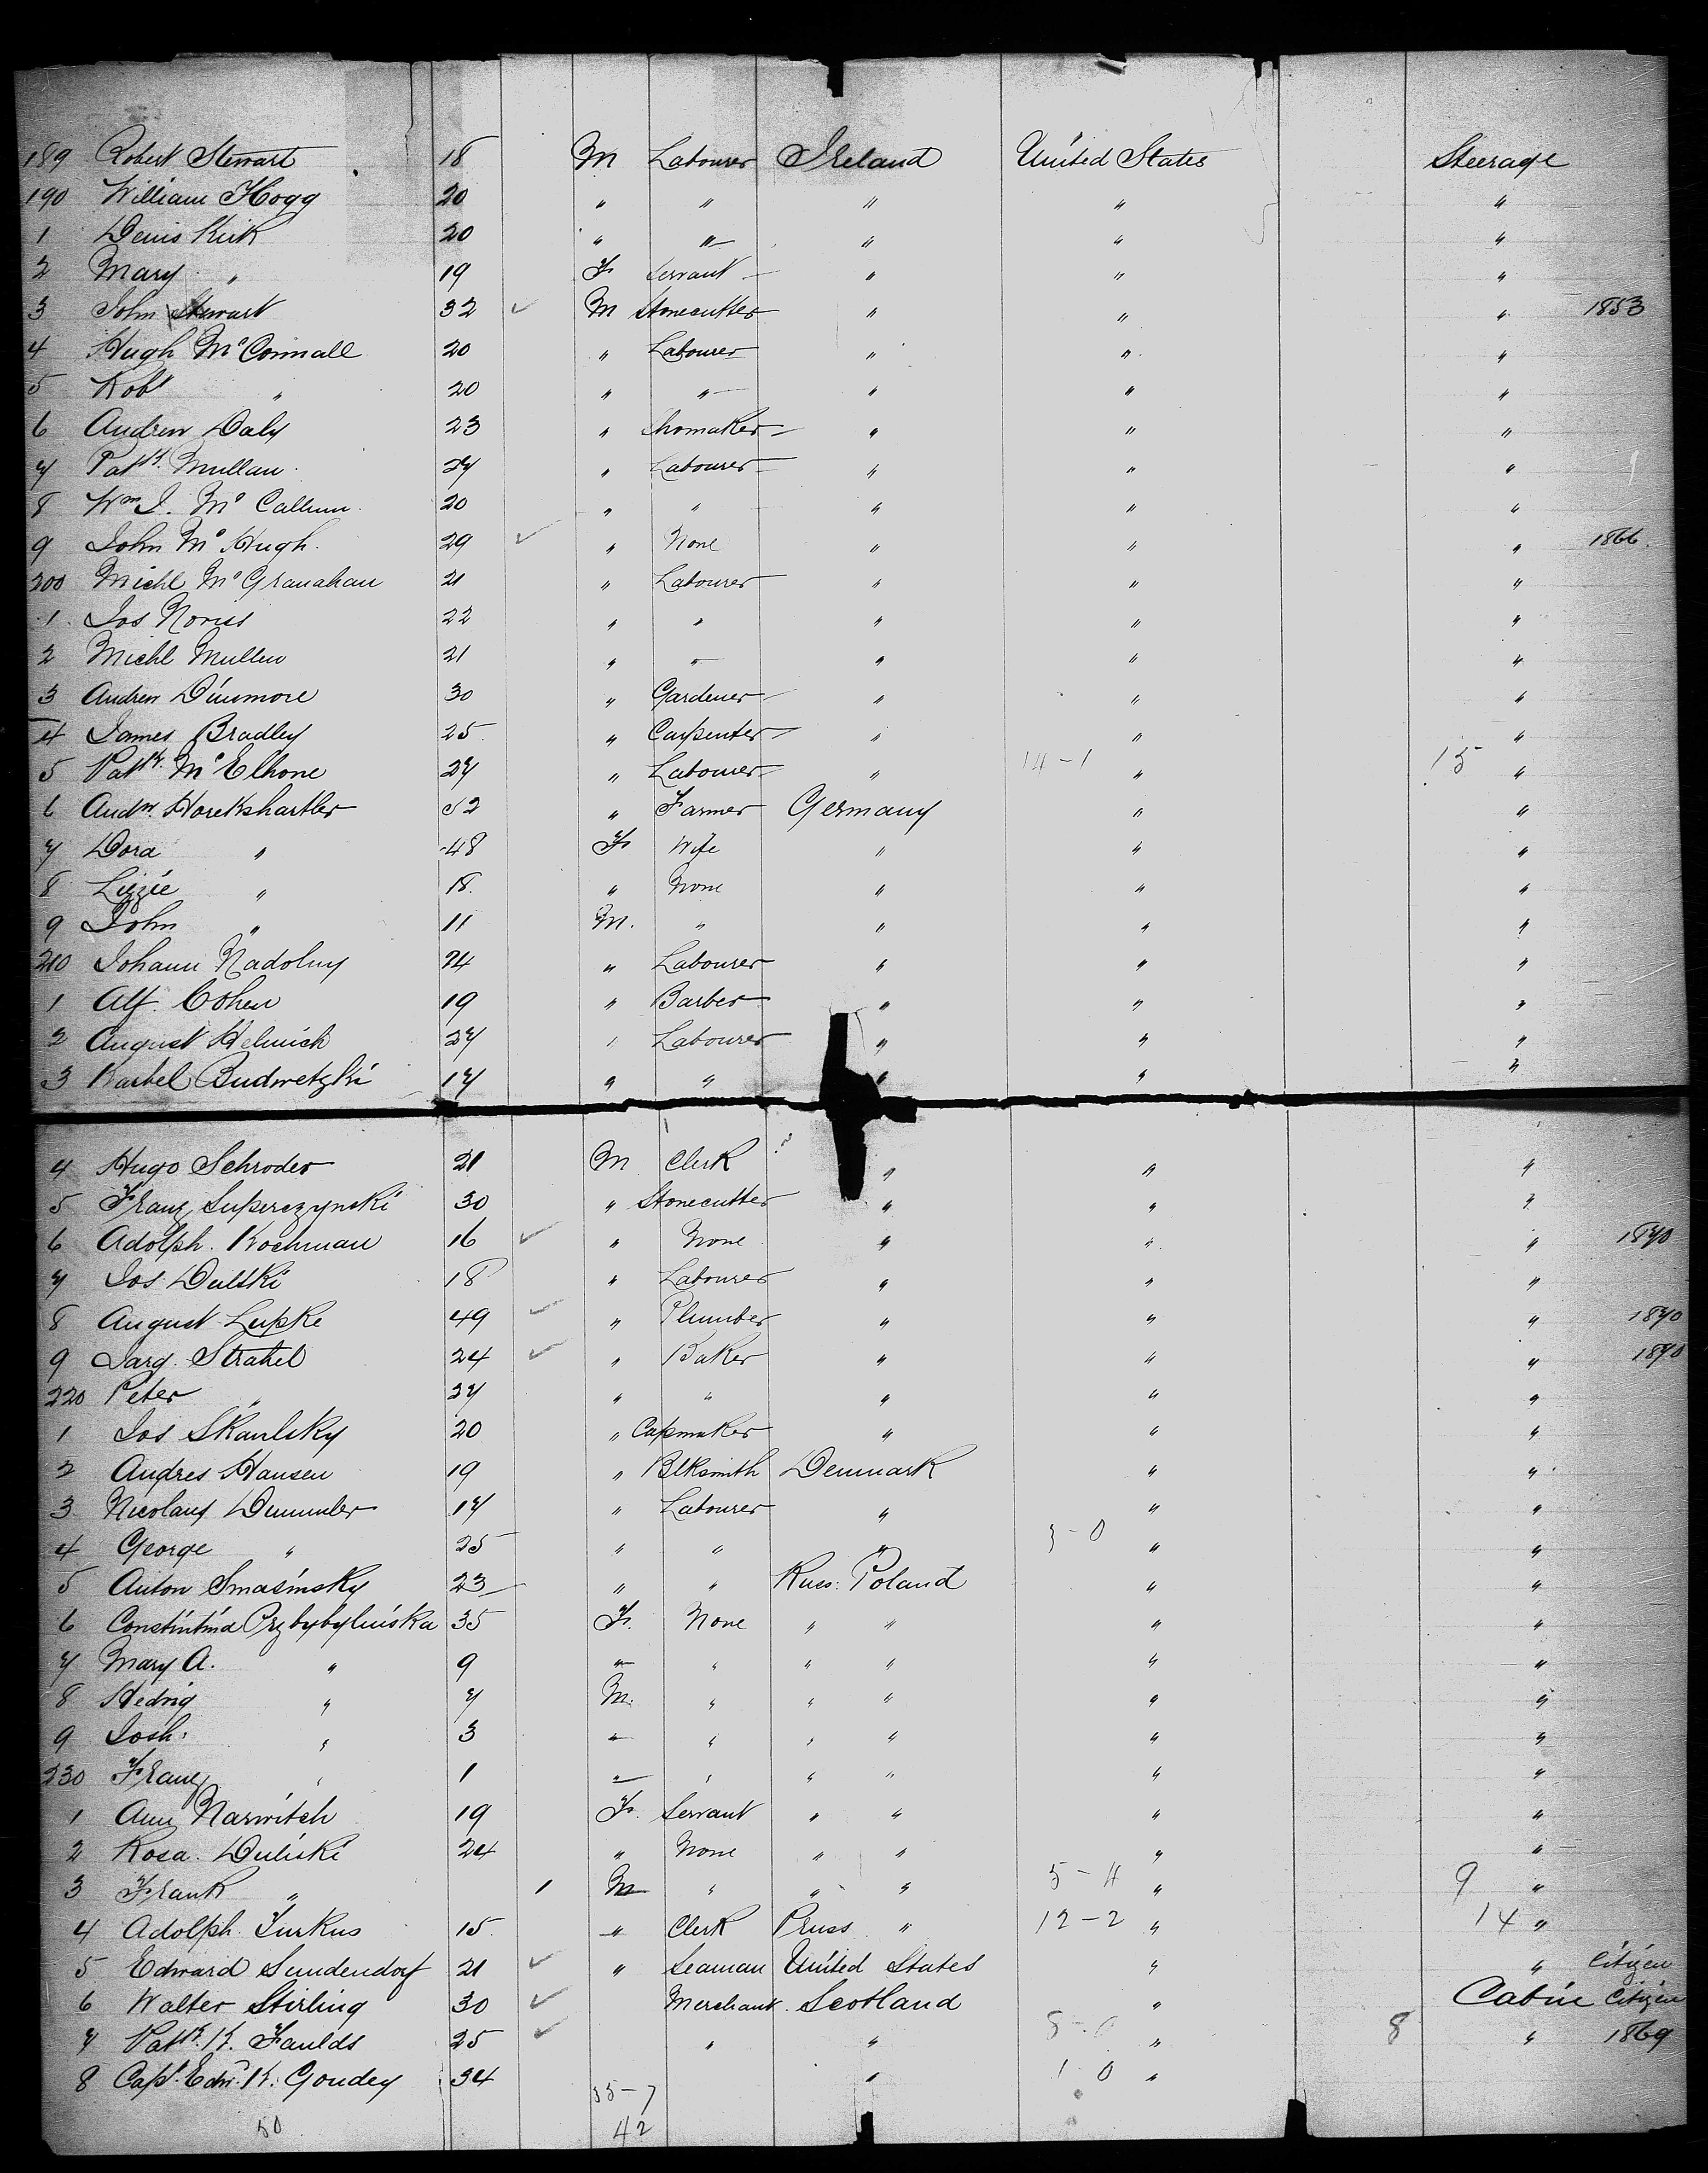 189 Robert Stewart 18 M Labourer Ireland United States Steerage
190 William Hogg 20 " " " " "
1 Denis Kirk 20 " " " " "
2 Mary " 19 F Servant " " "
3 John Stewart 32 ✓ M Stonecutter " " " 1853
4 Hugh McConnall 20 " Labourer " " "
5 Robt " 20 " " " " "
6 Andrew Daly 23 " Shomaker " " "
7 Pattk. Mullan 27 " Labourer " " "
8 Wm J. McCallum 20 " " " " "
9 John McHugh 29 ✓ " None " " " 1866
200 Michl McGranahan 21 " Labourer " " "
1 Jos Norris 22 " " " " "
2 Michl Mullen 21 " " " " "
3 Andrew Dinsmore 30 " Gardener " " "
4 James Bradley 25 " Carpenter " " "
5 Pattk. McElhone 27 " Labourer " 14-1 " 15 "
6 Andw. Horekshartler 52 " Farmer Germany " "
7 Dora " 48 F Wife " " "
8 Lizzie " 18 " None " " "
9 John " 11 M. " " " "
210 Johann Nadolny 24 " Labourer " " "
1 Alf. Cohen 19 " Barber " " "
2 August Helmich 27 " Labourer " " "
3 Bartel Budwetzki 17 " " " " "
4 Hugo Schroder 21 M Clerk " " "
5 Franz Superczynski 30 " Stonecutter " " "
6 Adolph. Kochman 16 ✓ " None " " " 1870
7 Jos Dulski 18 " Labourer " " "
8 August Lupke 49 ✓ " Plumber " " " 1870
9 Strahel 24 ✓ " Baker " " " 1870
220 Peter " 27 " " " " "
1 Jos Skaulsky 20 " Capmaker " " "
2 Andres Hansen 19 " Blksmith Denmark " "
3 Nicolaus Dummler 17 " Labourer " " "
4 George " 25 " " " 3-0 " "
5 Anton Smasinsky 23 " " Russ: Poland " "
6 Constintina Przbybylinska 35 F. None " " " "
7 Mary A. " 9 " " " " " "
8 Hedwig " 7 M. " " " " "
9 Josh. " 3 " " " " " "
230 Franz " 1 " " " " " "
1 Ann Narwitch 19 F. Servant " " " "
2 Rosa. Duliski 24 " None " " " "
3 Frank " 1 M " " " 5-4 " 9 "
4 Adolph. Turkus 15 " Clerk Pruss " 12-2 " 14 "
5 Edward Sundendorf 21 ✓ " Seaman United States " " Citizen
6 Walter Stirling 30 ✓ Merchant Scotland " Cabin Citizen
7 Pattk. K. Faulds 25 ✓ " " " 8 " 1869
8 Capt. Edw. K. Goudey 34 " 1 0 "
35-7
50 42